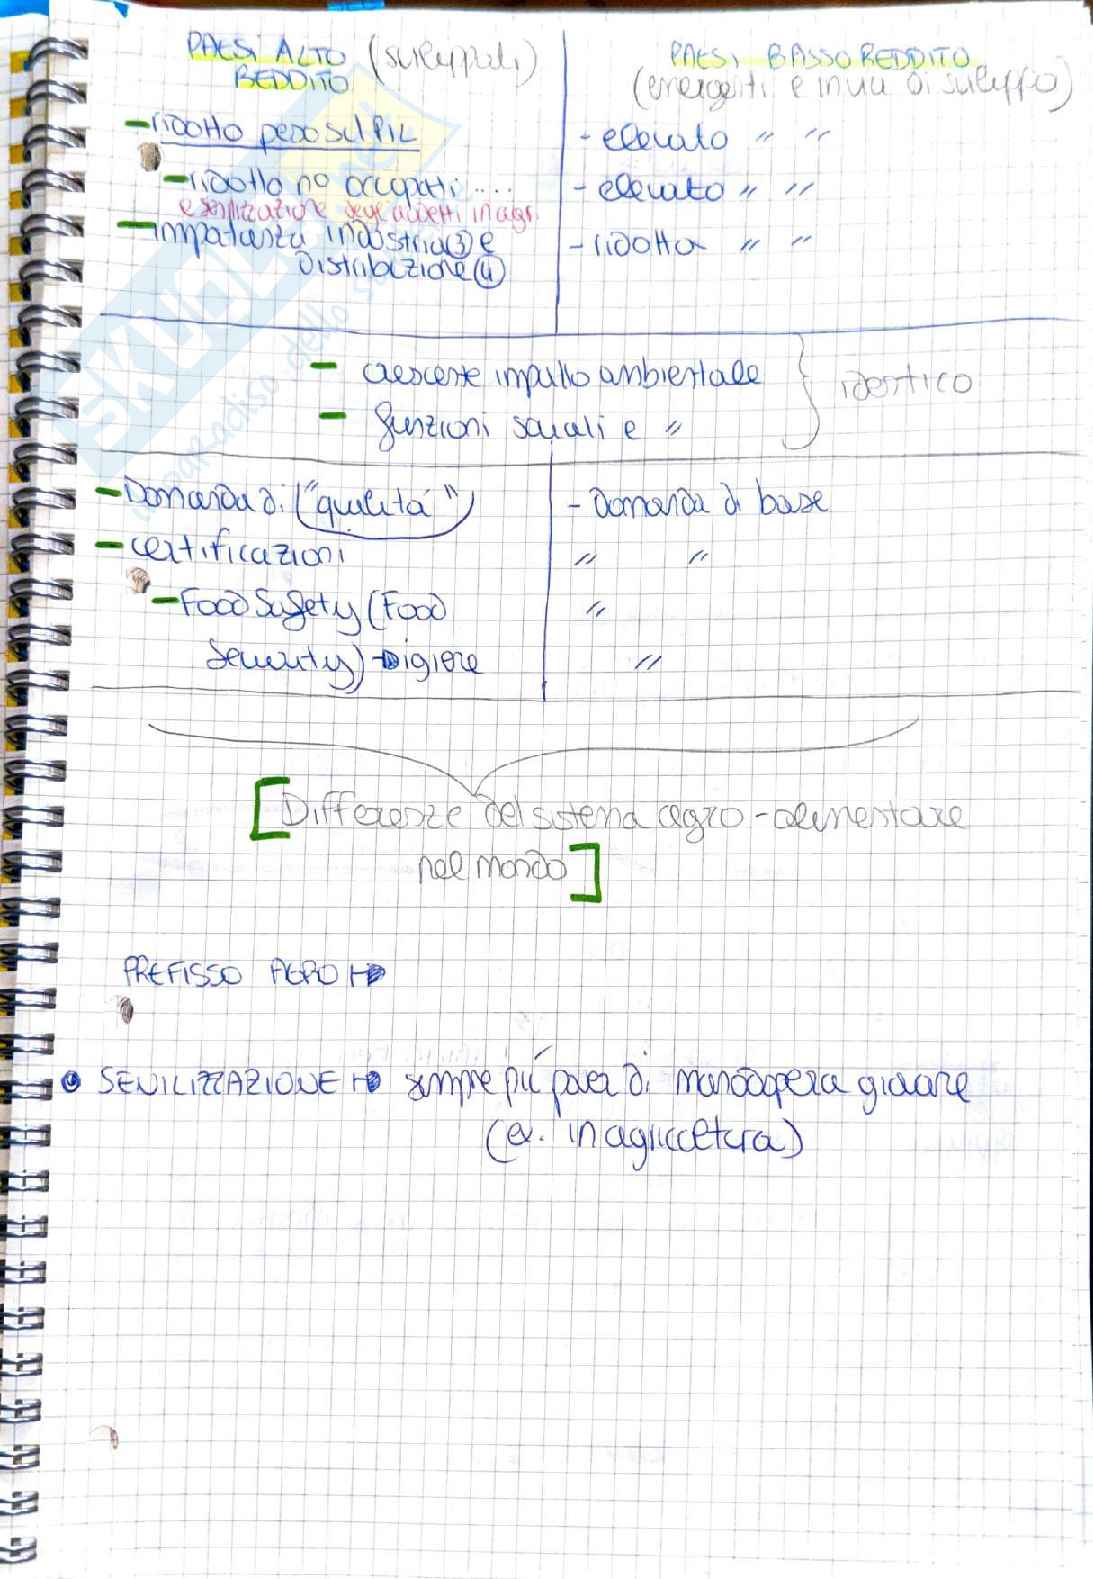 PAESI ALTO (sviluppati)
REDDITO
PAESI BASSO REDDITO
(emergenti e in via di sviluppo)
- ridotto peso sul PIL
- elevato " "
- ridotto n° occupati ....
- elevato " "
e senilizzazione degli addetti in agr.
- importanza industria (3) e
distribuzione (4)
- ridotta " "
- crescente impatto ambientale
- funzioni sociali e "
identico
- Domanda di "qualità"
- Domanda di base
- certificazioni
" "
- Food Safety (Food
"
Security) → igiene
"
[Differenze del sistema agro-alimentare
nel mondo]
PREFISSO AGRO →
• SENILIZZAZIONE → sempre più povera di manodopera giovane
(es. in agricoltura)
SKUOLA.net
il paradiso dello studente